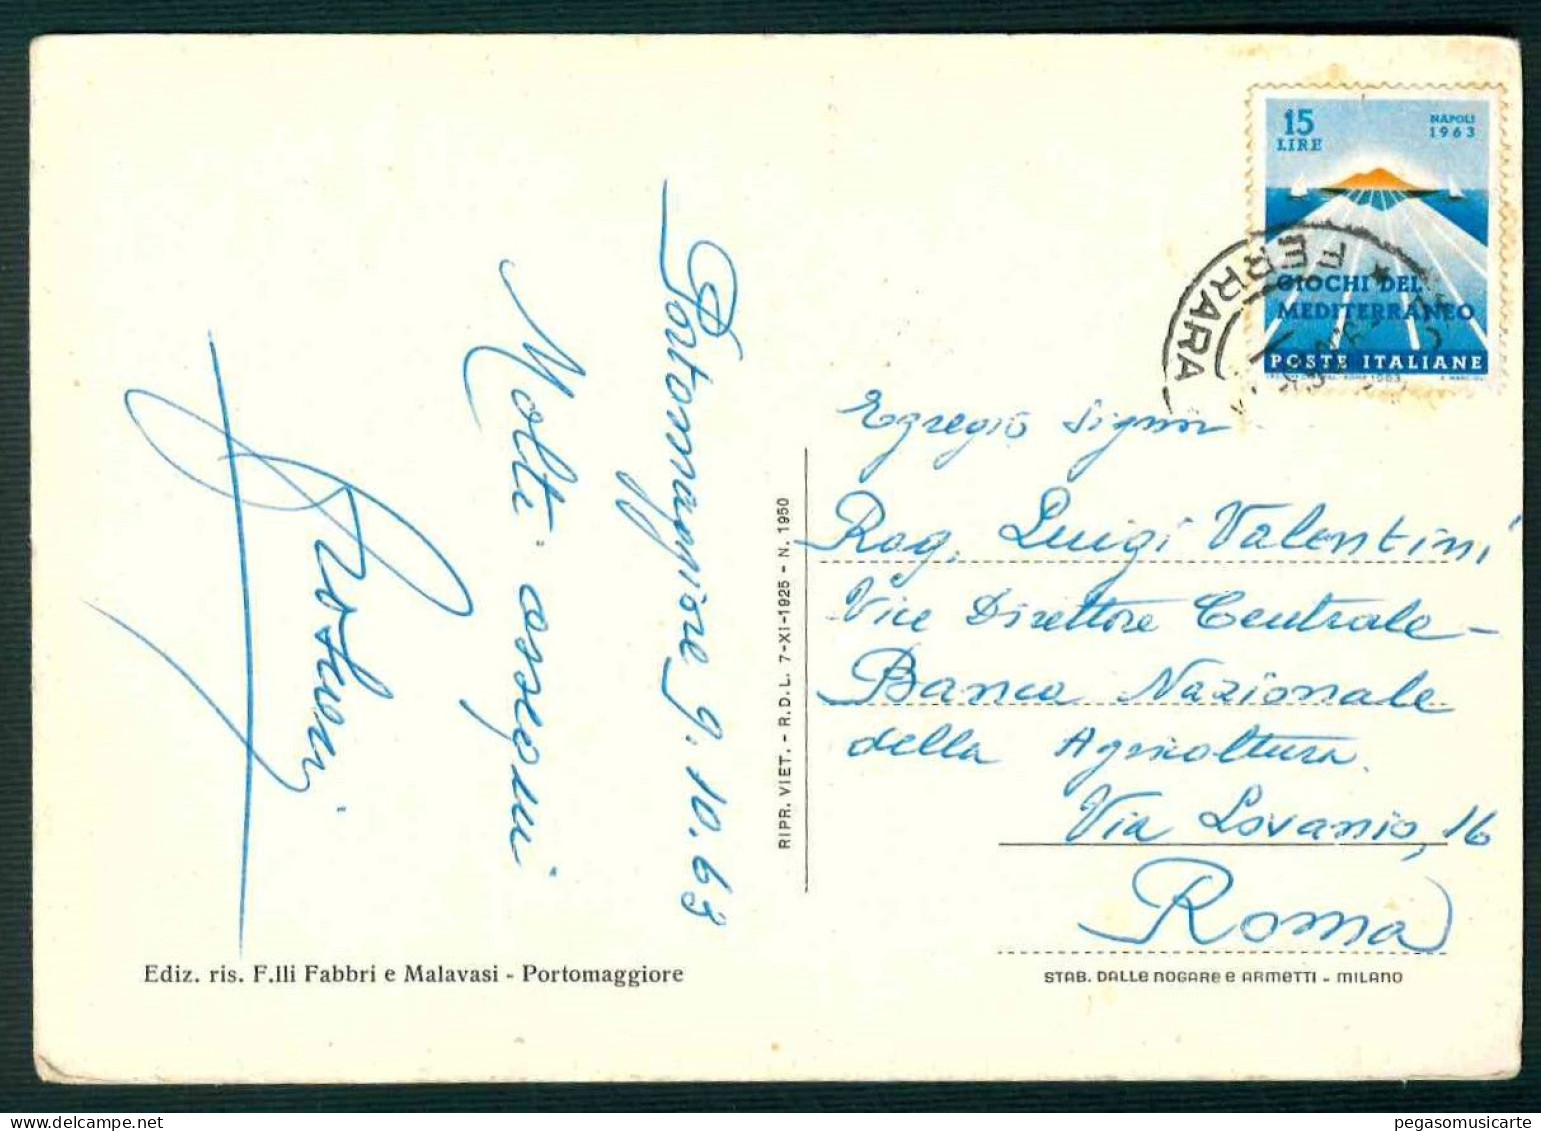 Portomaggiore 9.10.63
Molti ossequi
RIPR. VIET. - R.D.L. 7-XI-1925 - N. 1950
Ediz. ris. F.lli Fabbri e Malavasi - Portomaggiore
15
LIRE
NAPOLI
1963
GIOCHI DEL
MEDITERRANEO
POSTE ITALIANE
FERRARA
Egregio Signor
Rag. Luigi Valentini
Vice Direttore Centrale -
Banca Nazionale
della Agricoltura
Via Lovanio, 16
Roma
STAB. DALLE NOGARE e ARMETTI - MILANO
pegasomusicarte